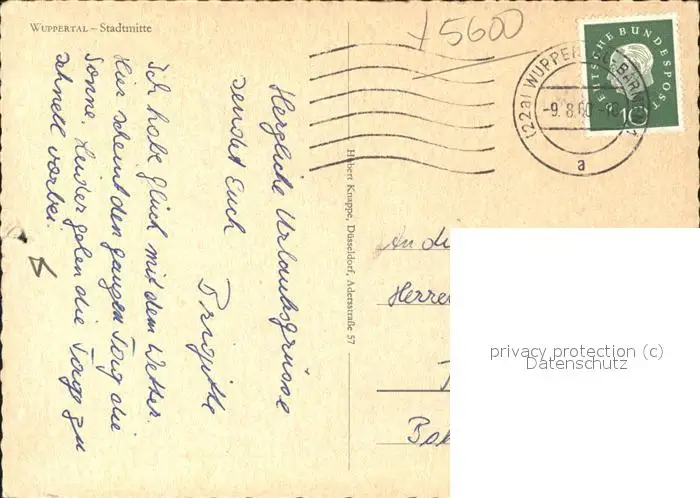 WUPPERTAL – Stadtmitte
5600
DEUTSCHE BUNDESPOST
10
(22a) WUPPERTAL-BARMEN 1
-9.8.60
a
Herzliche Urlaubsgrüsse
sendet Euch
Brigitte
Ich habe Glück mit dem Wetter.
Hier scheint den ganzen Tag die
Sonne. Leider gehen die Tage zu
schnell vorbei.
Hubert Knappe, Düsseldorf, Adersstraße 57
An die
Herren
privacy protection (c)
Datenschutz